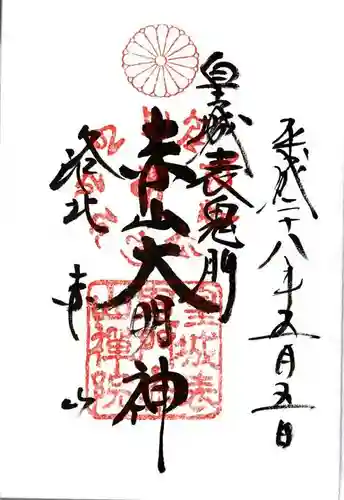 平成二十八年五月五日
皇城表鬼門
赤山大明神
洛北 赤山
皇城表
赤山禅院